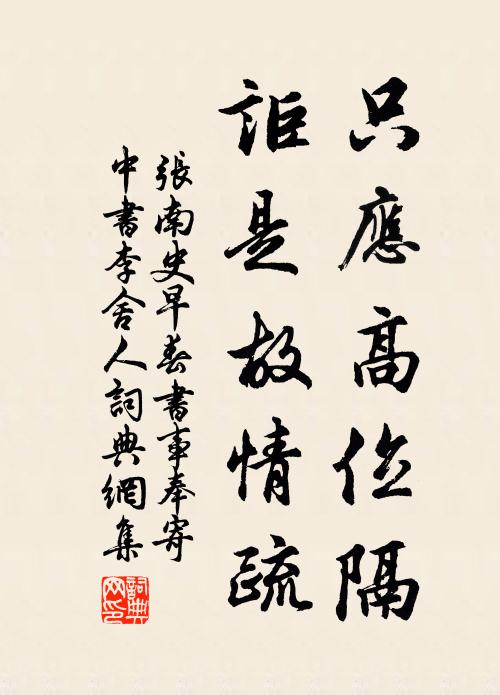 只應高位隔
詎是故情疏
張南史早春書事奉寄
中書李舍人詞典網集
詞典网印